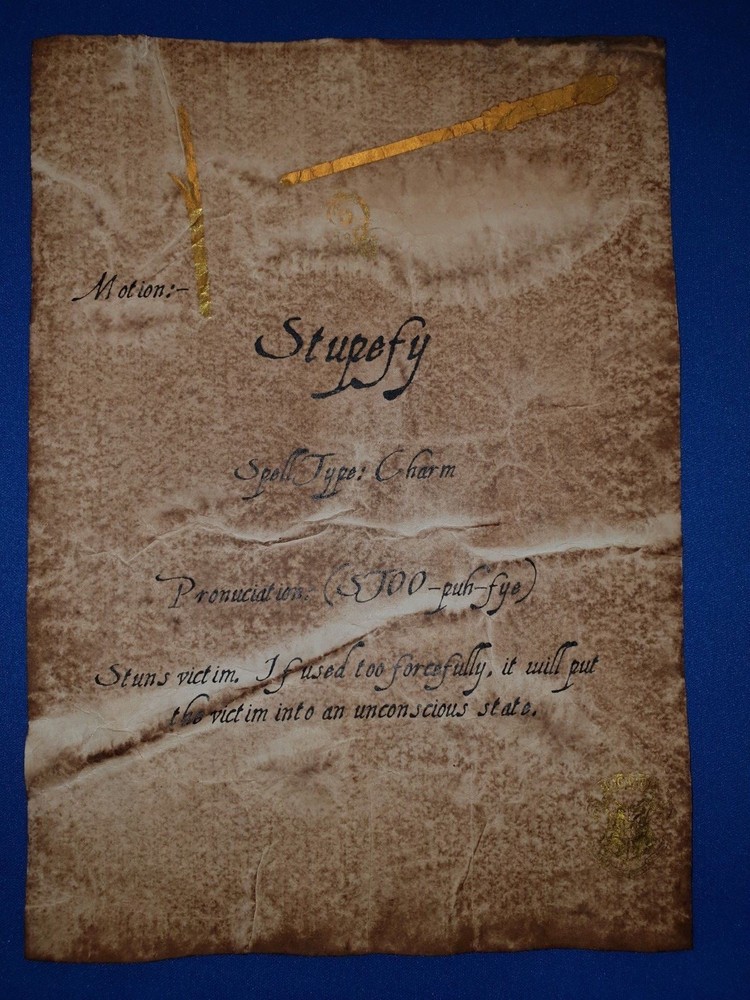 Motion:-
Stupefy
Spell Type: Charm
Pronuciation: (STOO-puh-fye)
Stuns victim. If used too forcefully, it will put
the victim into an unconscious state.